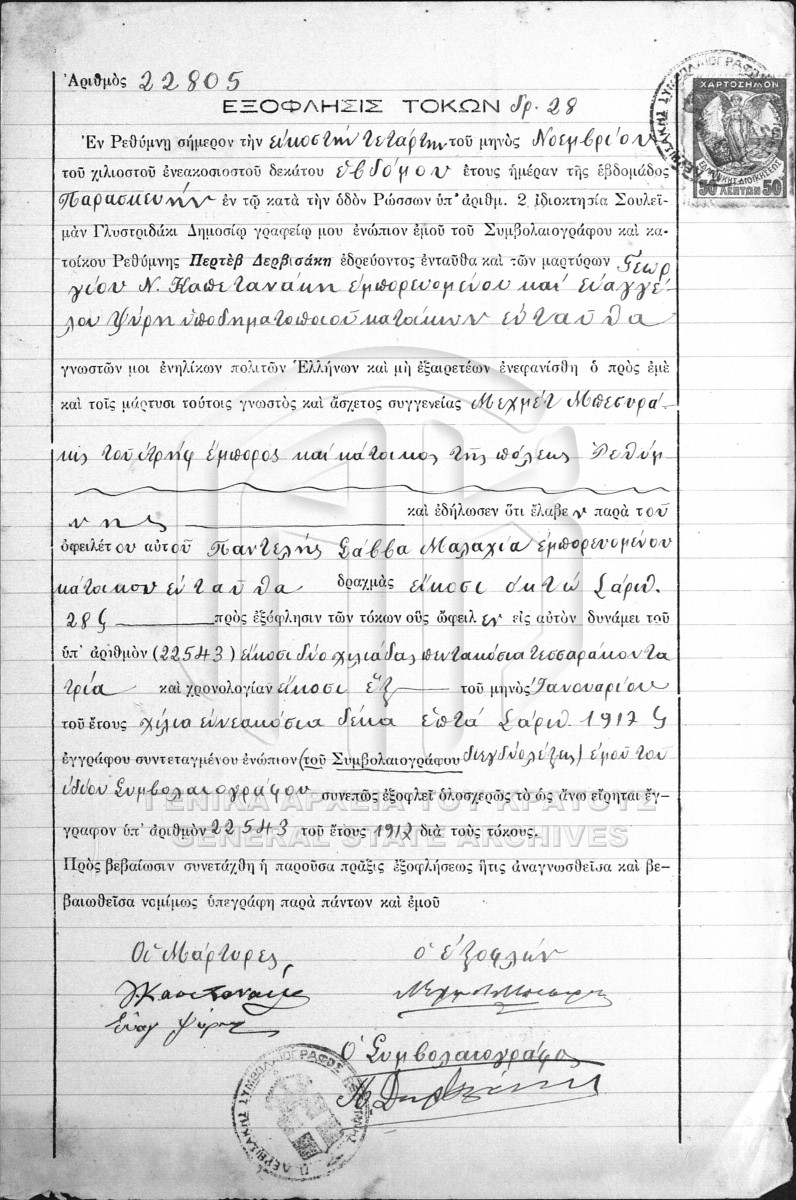 Ἀριθμὸς 22805
ΕΞΟΦΛΗΣΙΣ ΤΟΚΩΝ δρ. 28
ΧΑΡΤΟΣΗΜΟΝ
50 ΛΕΠΤΩΝ 50
Ἐν Ρεθύμνῃ σήμερον τὴν εἰκοστὴν τετάρτην τοῦ μηνὸς Νοεμβρίου
τοῦ χιλιοστοῦ ἐνεακοσιοστοῦ δεκάτου ἑβδόμου ἔτους ἡμέραν τῆς ἑβδομάδος
Παρασκευὴν ἐν τῷ κατὰ τὴν ὁδὸν Ρώσσων ὑπ' ἀριθμ. 2 ἰδιοκτησία Σουλεϊ-
μὰν Γλυστριδάκι Δημοσίῳ γραφείῳ μου ἐνώπιον ἐμοῦ τοῦ Συμβολαιογράφου καὶ κα-
τοίκου Ρεθύμνης Περτὲβ Δερβισάκη ἑδρεύοντος ἐνταῦθα καὶ τῶν μαρτύρων Γεωρ
γίου Ν. Καπετανάκη ἐμπορευομένου καὶ Εὐαγγέ-
λου Ψύρη ὑποδηματοποιοῦ κατοίκων ἐνταῦθα
γνωστῶν μοι ἐνηλίκων πολιτῶν Ἑλλήνων καὶ μὴ ἐξαιρετέων ἐνεφανίσθη ὁ πρὸς ἐμὲ
καὶ τοῖς μάρτυσι τούτοις γνωστὸς καὶ ἄσχετος συγγενείας Μεχμὲτ Μπεσυρά-
κις τοῦ ἔμπορος καὶ κάτοικος τῆς πόλεως Ρεθύμ
νης καὶ ἐδήλωσεν ὅτι ἔλαβεν παρὰ τοῦ
ὀφειλέτου αὐτοῦ Παντελῆς Σάββα Μαλαχία ἐμπορευομένου
κατοίκου ἐνταῦθα δραχμὰς εἴκοσι ὀκτὼ (ἀριθ.
28) πρὸς ἐξόφλησιν τῶν τόκων οὓς ὤφειλεν εἰς αὐτὸν δυνάμει τοῦ
ὑπ' ἀριθμὸν (22543) εἴκοσι δύο χιλιάδας πεντακόσια τεσσαράκοντα
τρία καὶ χρονολογίαν εἴκοσι ἓξ τοῦ μηνὸς Ἰανουαρίου
τοῦ ἔτους χίλια ἐννεακόσια δέκα ἑπτὰ (ἀριθ. 1917)
ἐγγράφου συντεταγμένου ἐνώπιον (τοῦ Συμβολαιογράφου ) ἐμοῦ τοῦ
ἰδίου Συμβολαιογράφου συνεπῶς ἐξοφλεῖ ὁλοσχερῶς τὸ ὡς ἄνω εἴρηται ἔγ-
γραφον ὑπ' ἀριθμὸν 22543 τοῦ ἔτους 1917 διὰ τοὺς τόκους.
ΓΕΝΙΚΑ ΑΡΧΕΙΑ ΤΟΥ ΚΡΑΤΟΥΣ
GENERAL STATE ARCHIVES
Πρὸς βεβαίωσιν συνετάχθη ἡ παροῦσα πρᾶξις ἐξοφλήσεως ἥτις ἀναγνωσθεῖσα καὶ βε-
βαιωθεῖσα νομίμως ὑπεγράφη παρὰ πάντων καὶ ἐμοῦ
Οἱ Μάρτυρες ὁ ἐξοφλῶν
Εὐαγ Ψύρης
Ὁ Συμβολαιογράφος